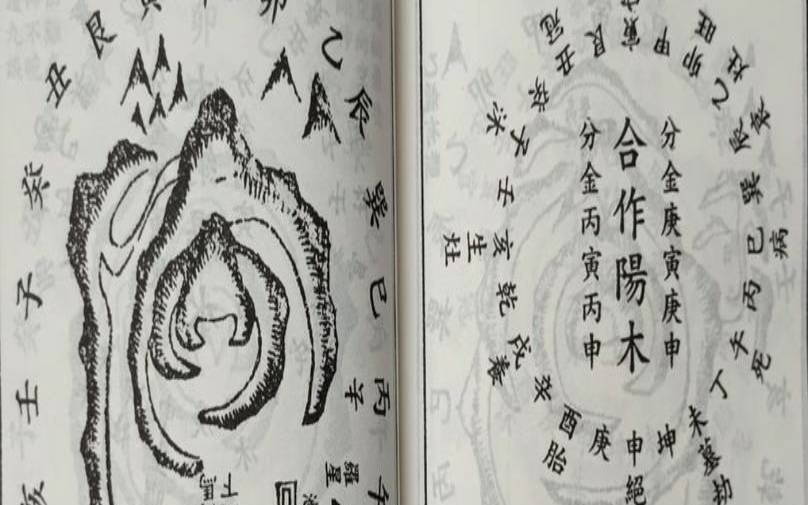 艮
丑
癸
子
壬
卯
乙
辰
巽
巳
丙
羅星
下馬
分金庚寅庚申
合作陽木
分金丙寅丙申
壬
子
沐
癸
丑冠
艮
寅
甲
卯旺
乙
辰衰
巽
巳病
丙
午死
丁
未墓劫
坤
申絕
庚
酉胎
辛
戌養
乾
亥生灶